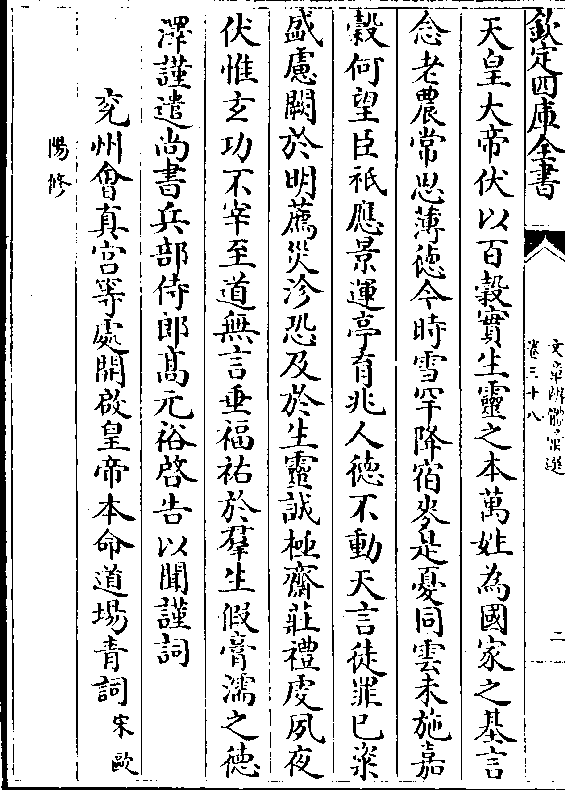 欽定四庫全書
文章辨體彚選
卷三十八
二
天皇大帝伏以百穀實生靈之本萬姓為國家之基言
念老農常思薄徳今時雪罕降宿麥是憂同雲未施嘉
穀何望臣祗應景運亭育兆人徳不動天言徒罪已粢
盛慮闕於明薦災沴恐及於生靈誠極齋莊禮虔夙夜
伏惟玄功不宰至道無言垂福祐於羣生假膏濡之徳
澤謹遣尚書兵部侍郎髙元裕啓告以聞謹詞
兖州會真宫等處開啟皇帝本命道場青詞宋歐
陽修